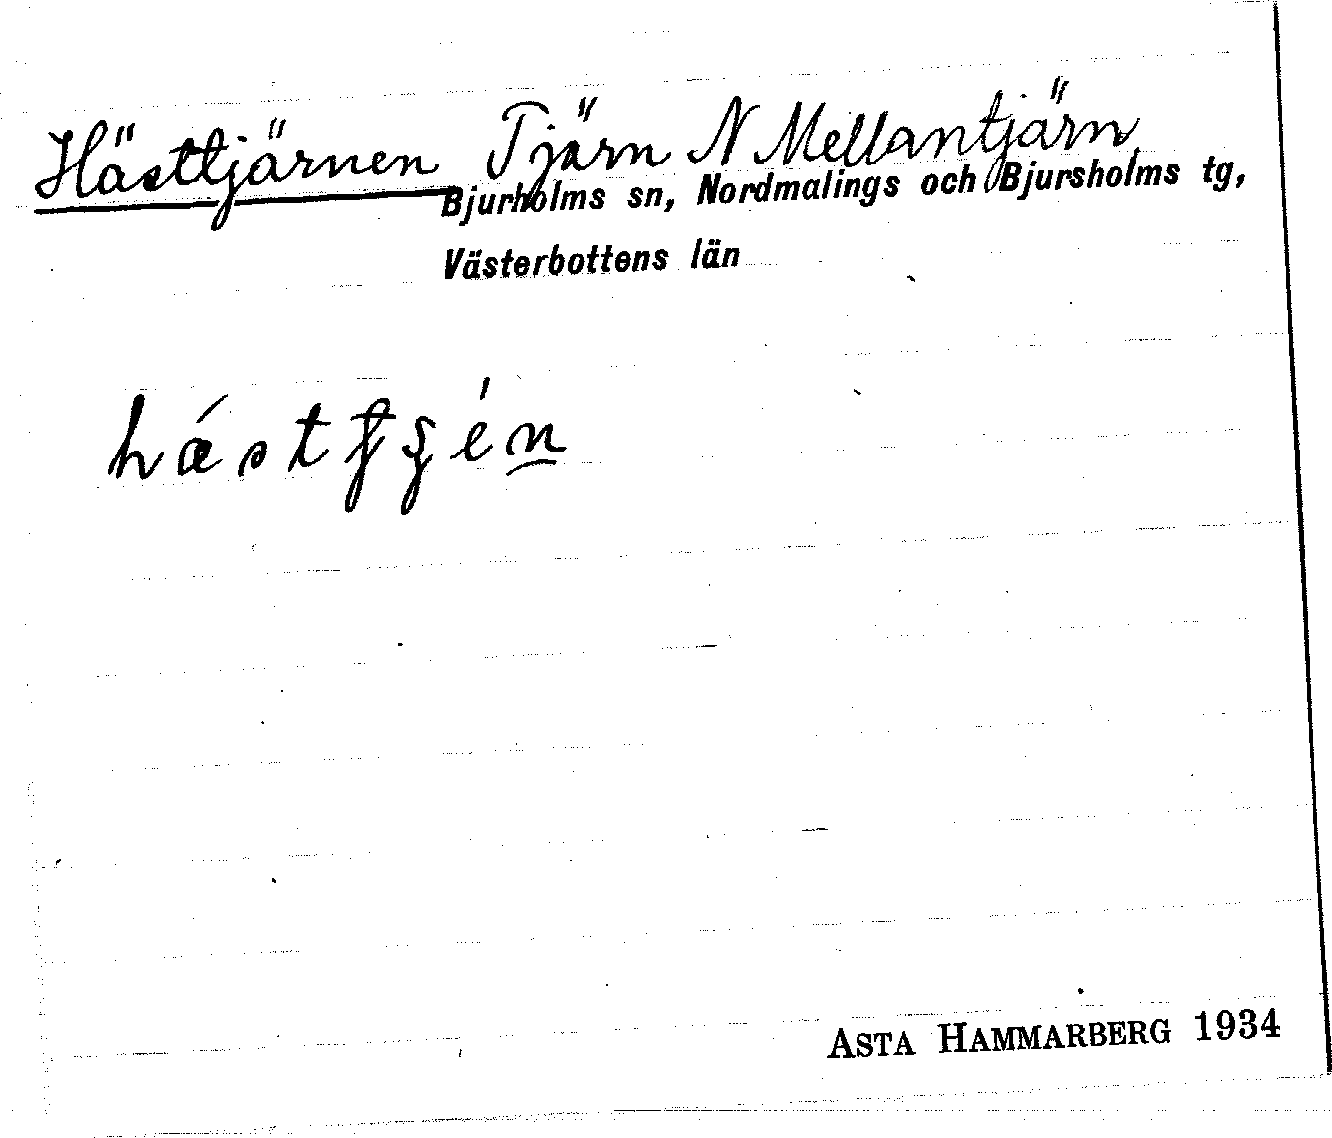 Hästtjärnen Tjärn N Mellantjärn
Bjurholms sn, Nordmalings och Bjursholms tg,
Västerbottens län
ASTA HAMMARBERG 1934